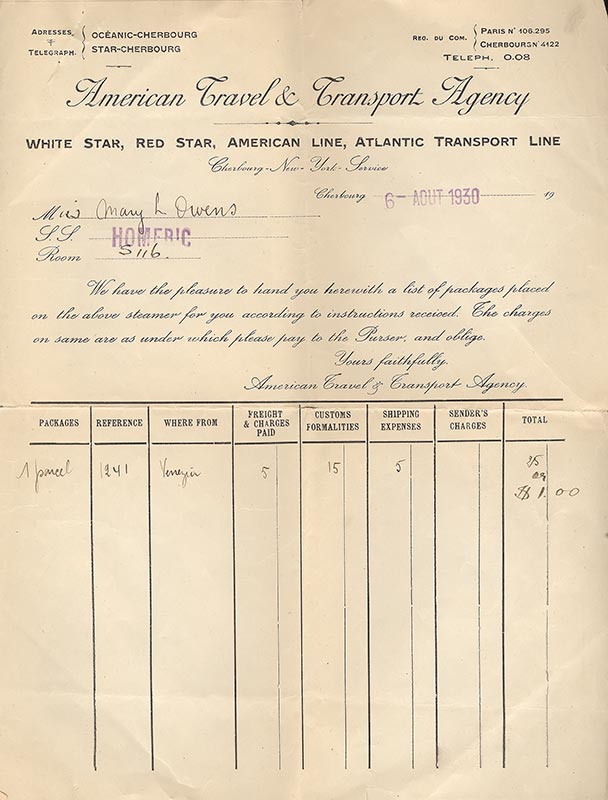 ADRESSES TELEGRAPH. OCÉANIC-CHERBOURG
STAR-CHERBOURG
REG. DU COM. PARIS Nº 106.295
CHERBOURG Nº 4122
TELEPH. 0.08
American Travel & Transport Agency
WHITE STAR, RED STAR, AMERICAN LINE, ATLANTIC TRANSPORT LINE
Cherbourg-New-York-Service
Cherbourg 6 - AOUT 1930 19
Miss Mary L Owens
S.S. HOMERIC
Room S 116.
We have the pleasure to hand you herewith a list of packages placed
on the above steamer for you according to instructions received. The charges
on same are as under which please pay to the Purser, and oblige.
Yours faithfully.
American Travel & Transport Agency.
PACKAGES REFERENCE WHERE FROM FREIGHT & CHARGES PAID CUSTOMS FORMALITIES SHIPPING EXPENSES SENDER'S CHARGES TOTAL
1 parcel 1241 Venezia 5 15 5 25
or
$ 1.00